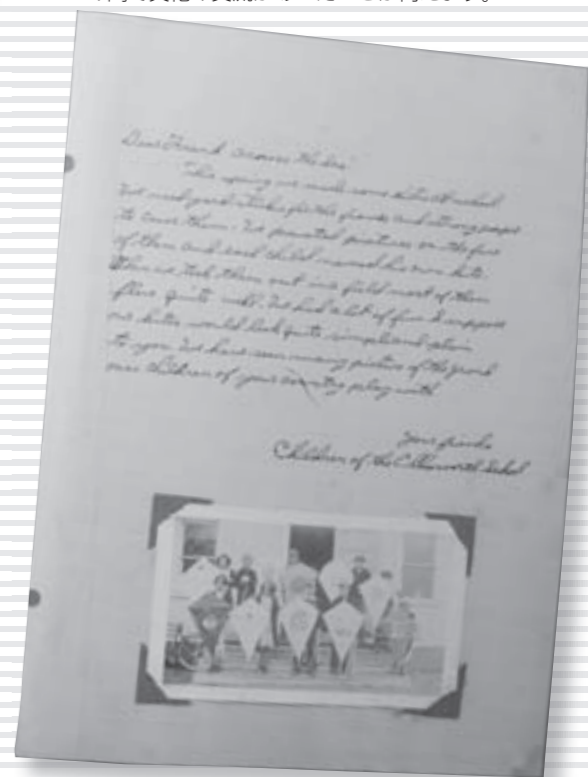 Dear Friends across the Sea:
This spring we made some kites at school
We used good sticks for the frames and strong paper
to cover them. We painted pictures on the face
of them and each child named his own kite.
When we took them out in a field most of them
flew quite well. We had a lot of fun. I suppose
our kites would look quite simple and plain
to you. We have seen many pictures of the grand
ones children of your country play with
Your friends
Children of the Ellsworth School